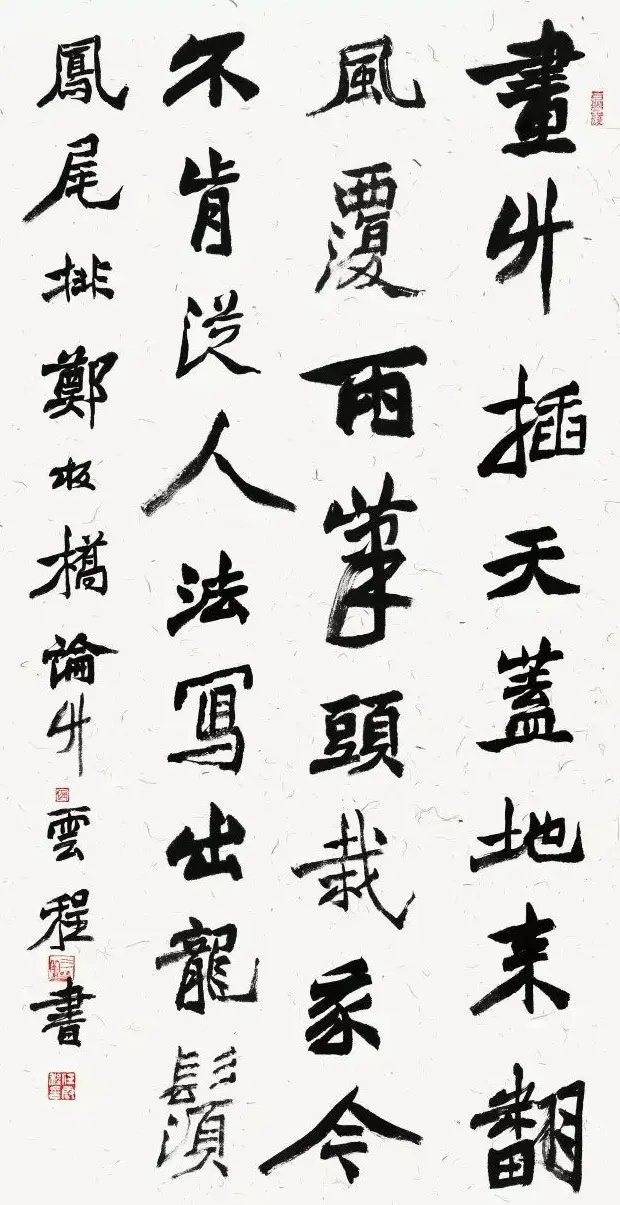 畫竹插天蓋地来翻
風覆雨筆頭栽我今
不肯從人法寫出龍鬚
鳳尾排鄭板橋論竹雲程書